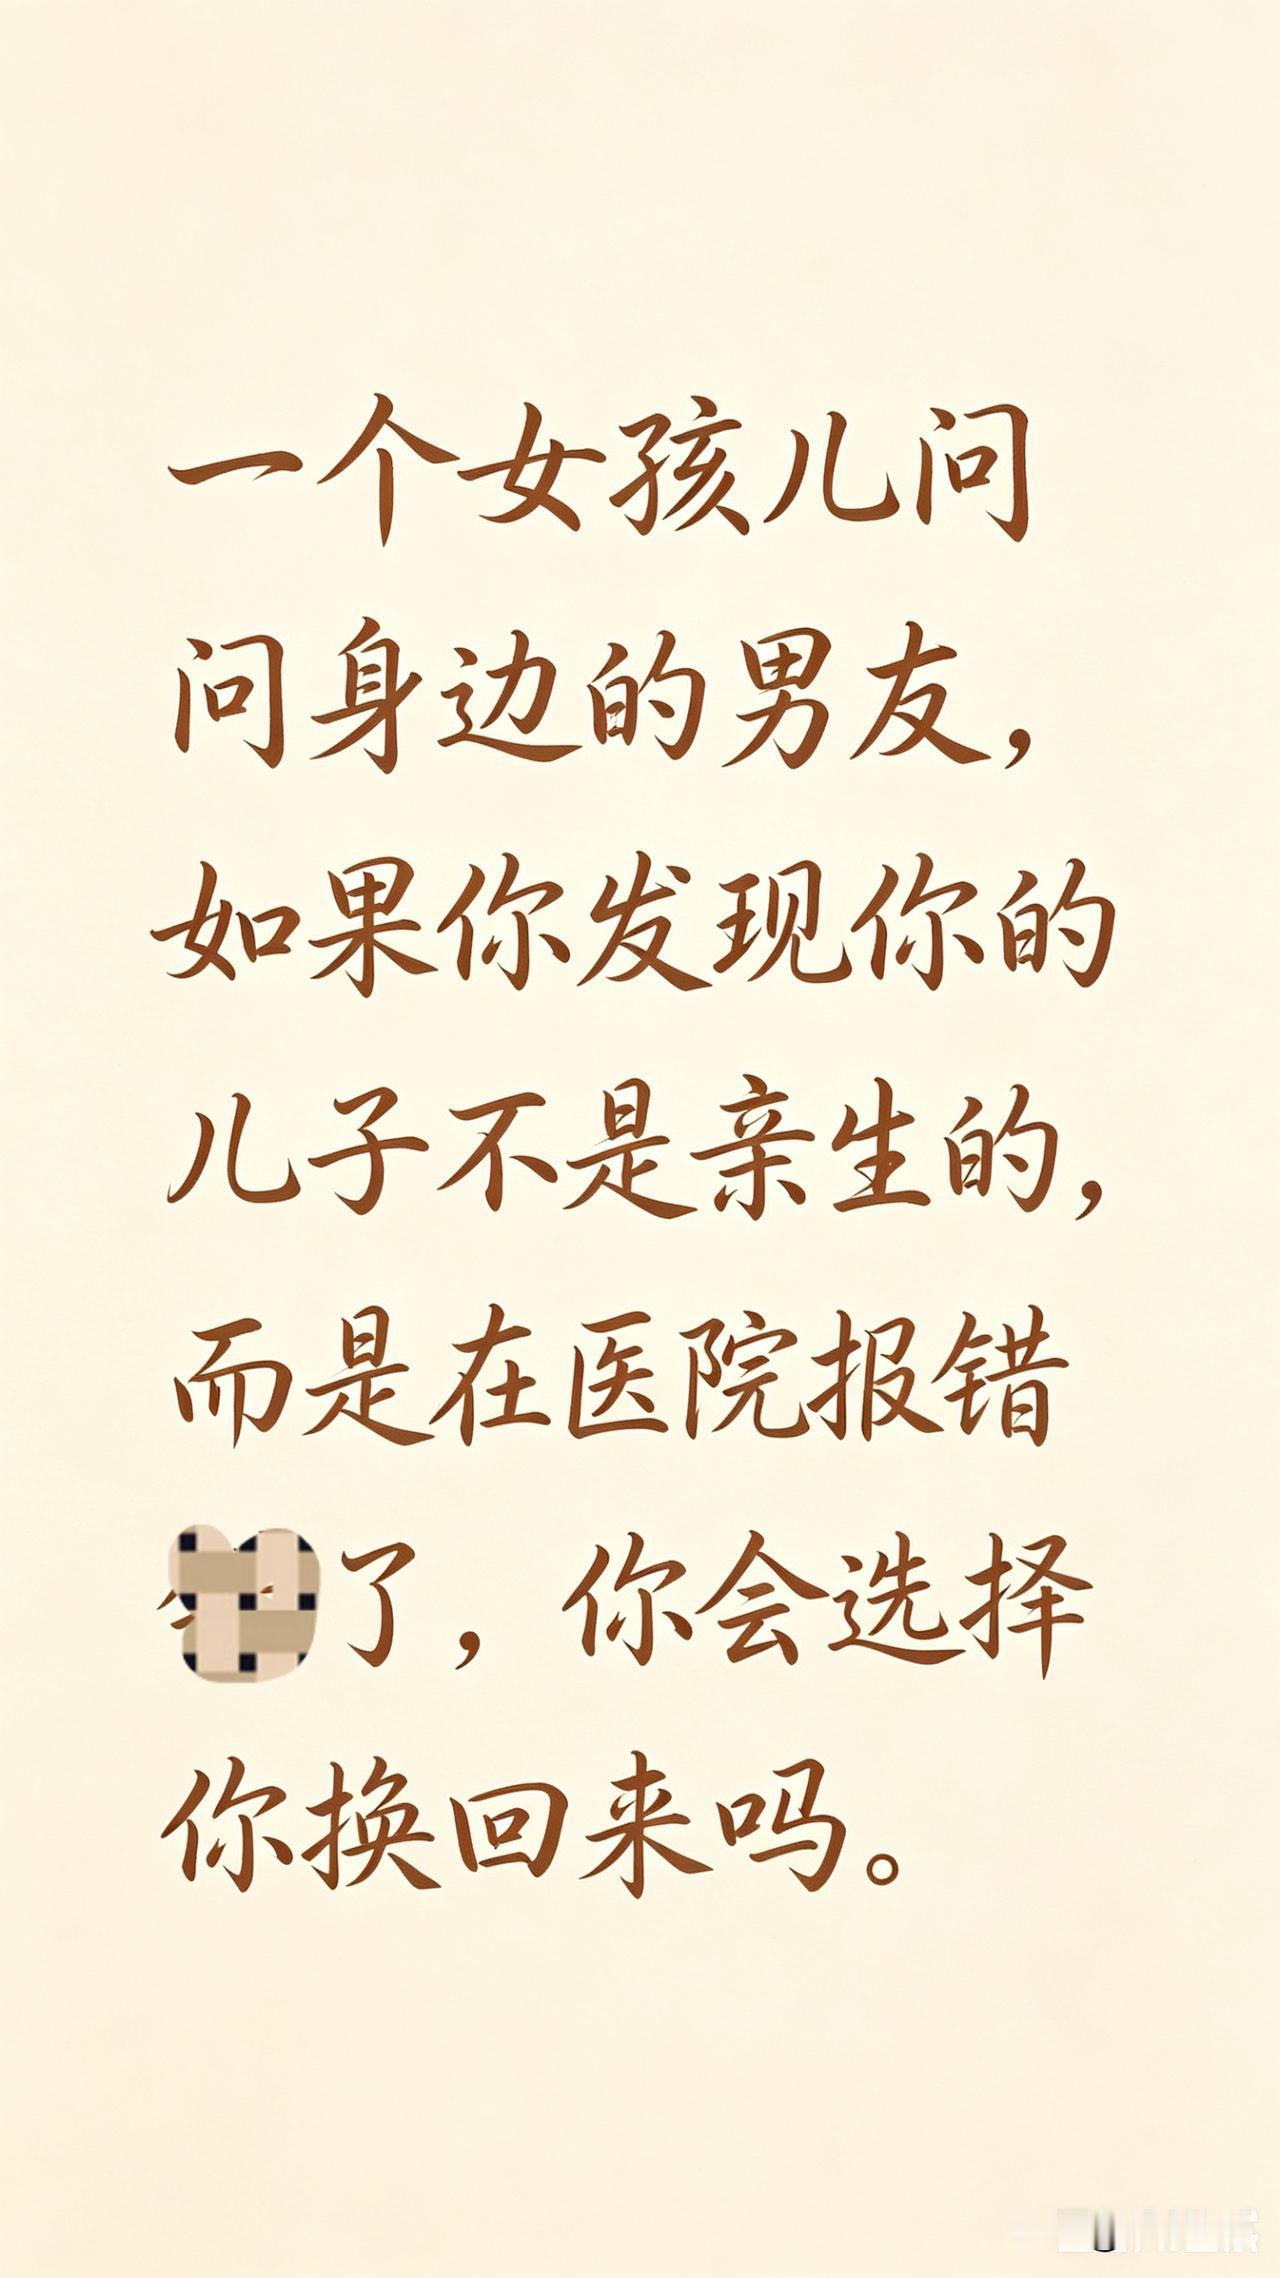 一个女孩儿问
问身边的男友，
如果你发现你的
儿子不是亲生的，
而是在医院报错
了，你会选择
你换回来吗。